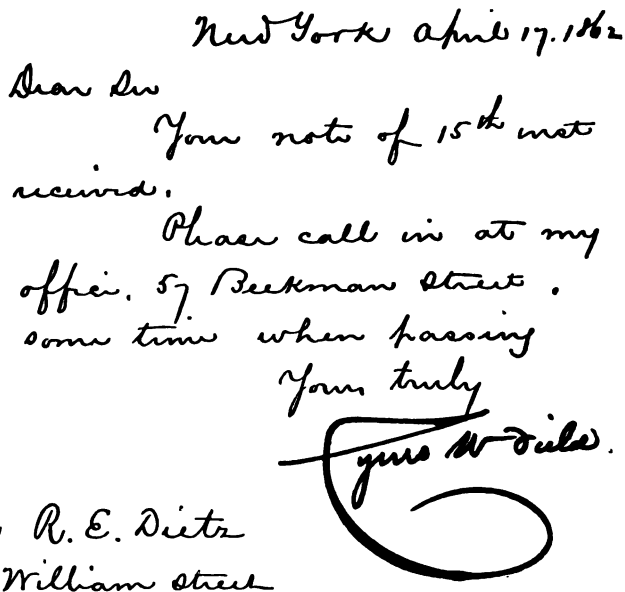 New York April 17. 1862
Dear Sir
Your note of 15th inst
received.
Please call in at my
office. 57 Beekman Street.
some time when passing
Yours truly
Cyrus W Field.
R. E. Dietz
William Street